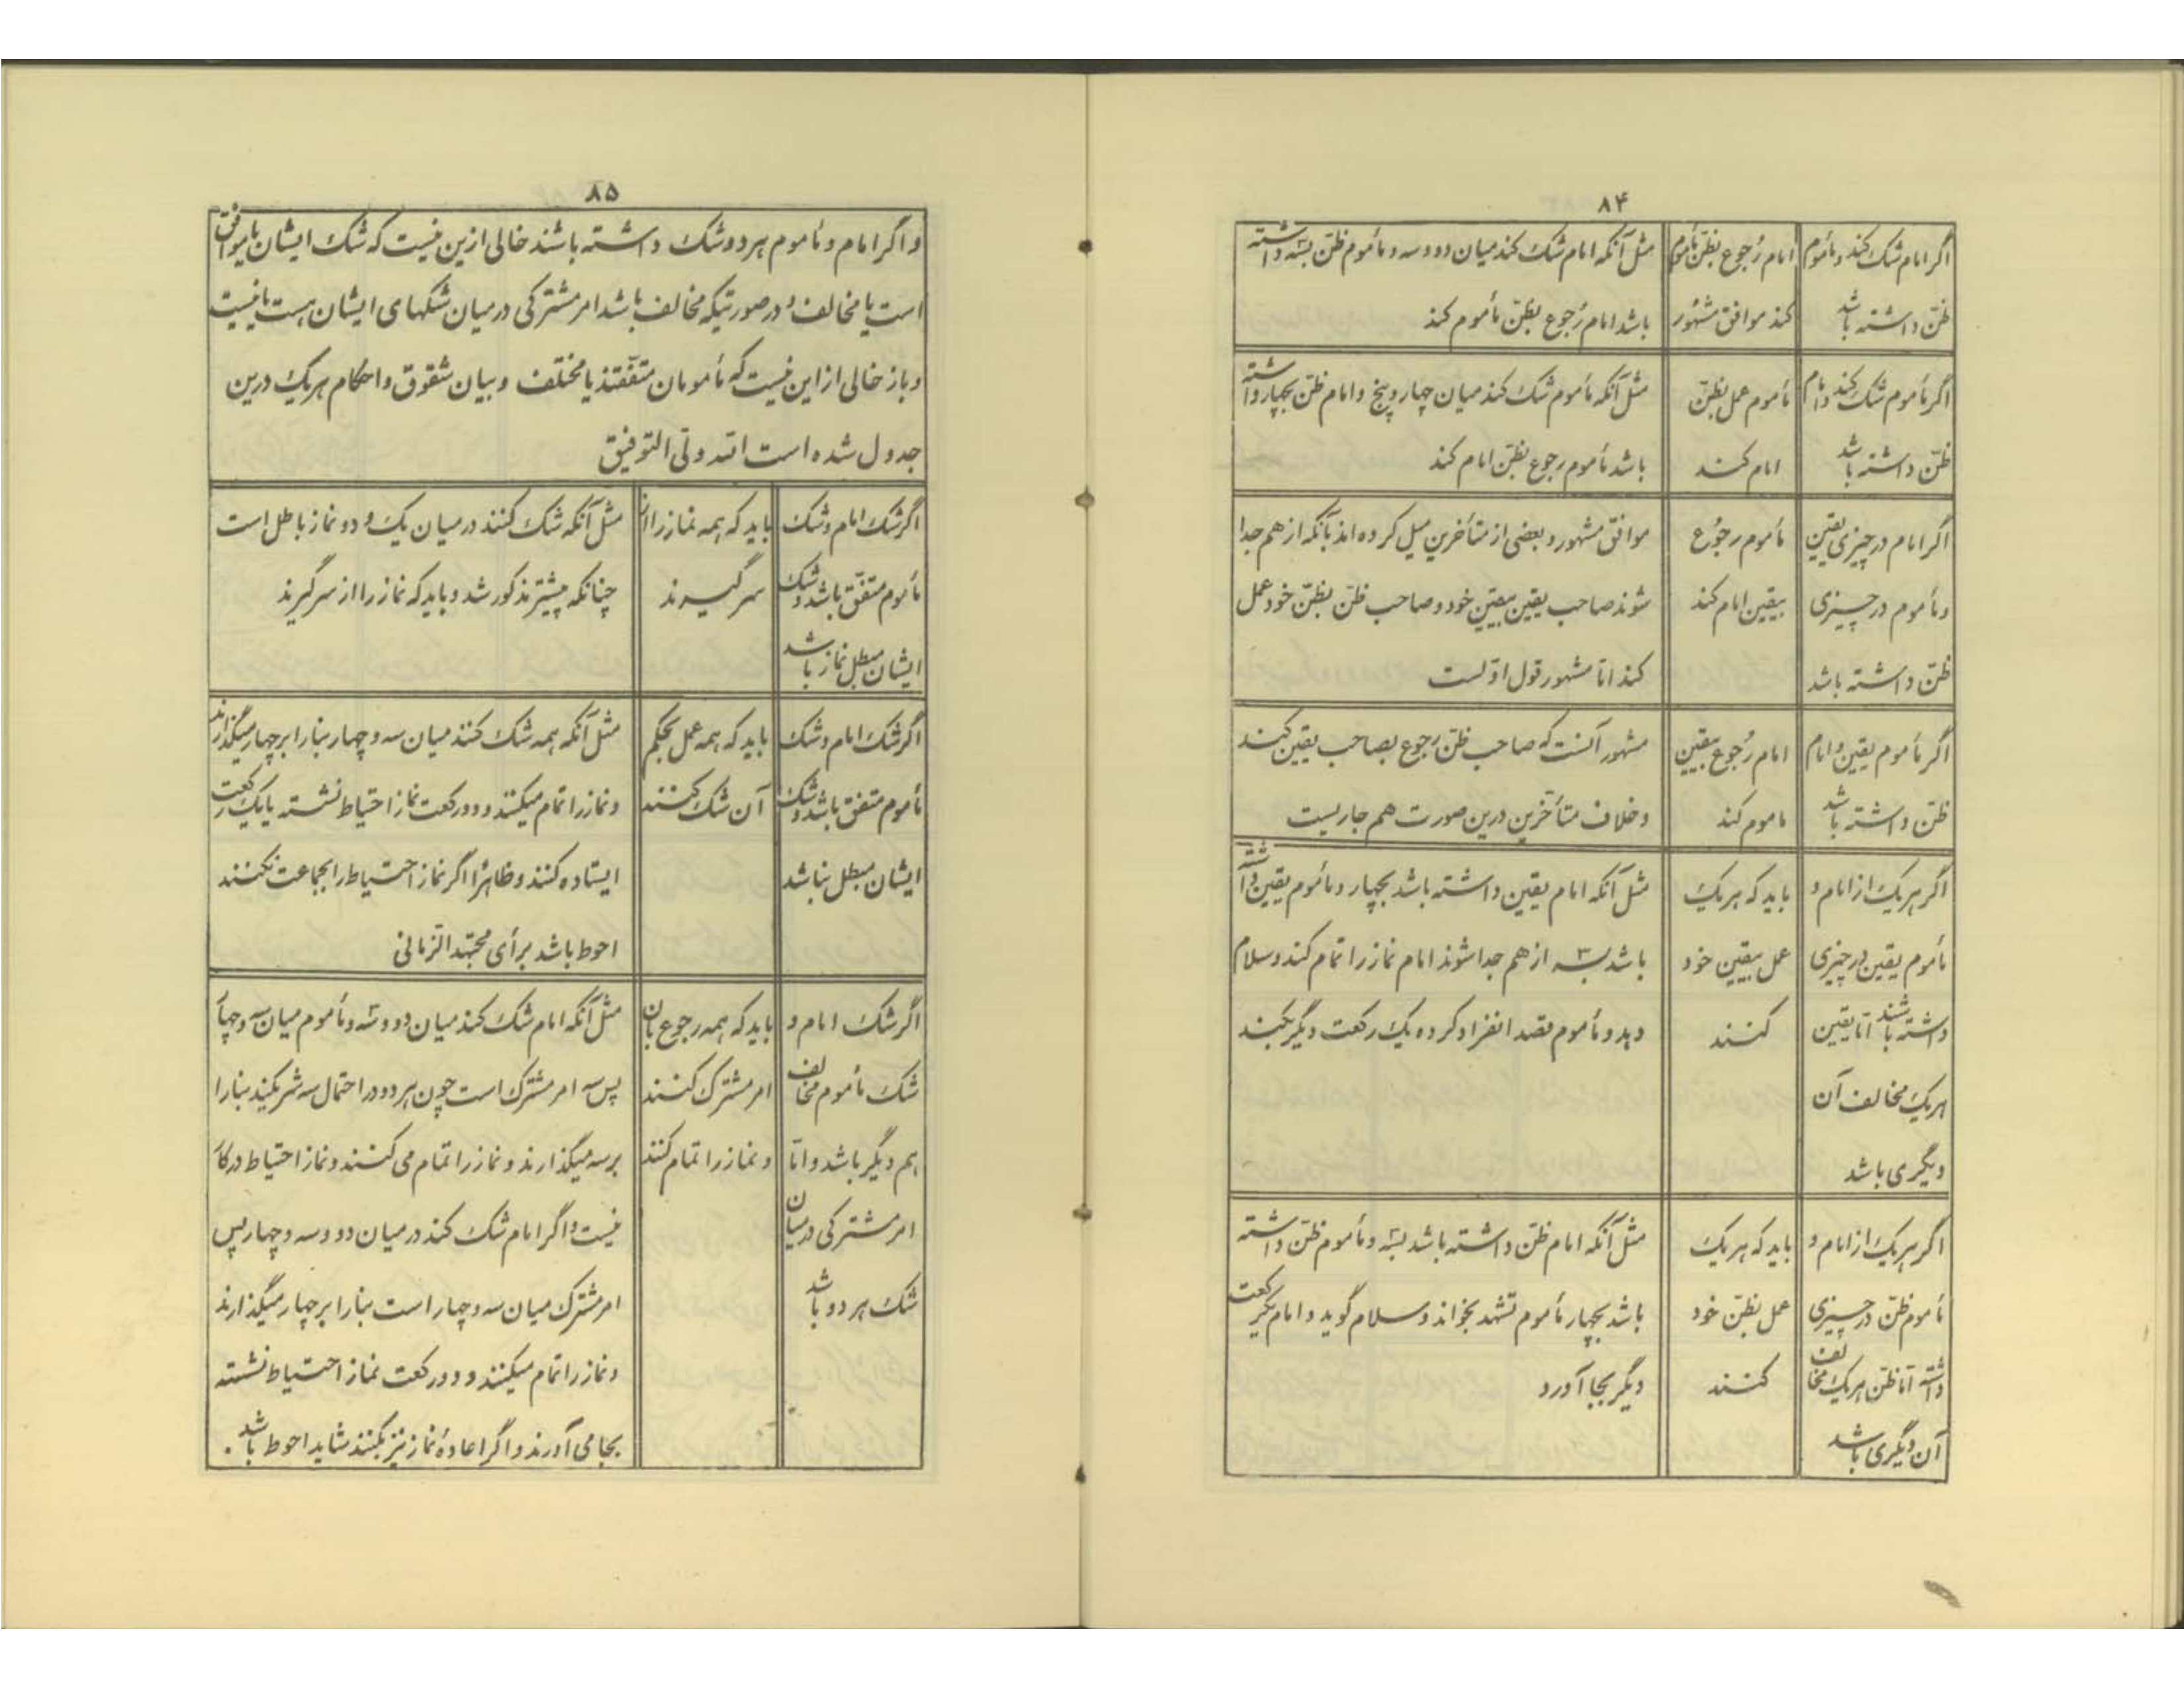 ۸۴
اگر امام شک کند و مأموم
ظن داشته باشد
امام رجوع بظن مأموم
کند موافق مشهور
مثل آنکه امام شک کند میان دو و سه و مأموم ظن بسه داشته
باشد امام رجوع بظن مأموم کند
اگر مأموم شک کند و امام
ظن داشته باشد
مأموم عمل بظن
امام کند
مثل آنکه مأموم شک کند میان چهار و پنج و امام ظن بچهار داشته
باشد مأموم رجوع بظن امام کند
اگر امام در چیزی یقین
و مأموم در چیزی
ظن داشته باشد
مأموم رجوع
بیقین امام کند
موافق مشهور و بعضی از متأخرین میل کرده اند بآنکه از هم جدا
شوند صاحب یقین بیقین خود و صاحب ظن بظن خود عمل
کند اما مشهور قول اولست
اگر مأموم یقین و امام
ظن داشته باشد
امام رجوع بیقین
ماموم کند
مشهور آنست که صاحب ظن رجوع بصاحب یقین کند
و خلاف متأخرین درین صورت هم جاریست
اگر هر یک از امام و
مأموم یقین در چیزی
داشته باشند اما یقین
هر یک مخالف آن
دیگری باشد
باید که هر یک
عمل بیقین خود
کنند
مثل آنکه امام یقین داشته باشد بچهار و مأموم یقین داشته
باشد بسه از هم جدا شوند امام نماز را تمام کند و سلام
دهد و مأموم قصد انفراد کرده یک رکعت دیگر بکند
اگر هر یک از امام و
مأموم ظن در چیزی
داشته اما ظن هر یک مخالف
آن دیگری باشد
باید که هر یک
عمل بظن خود
کنند
مثل آنکه امام ظن داشته باشد بسه و مأموم ظن داشته
باشد بچهار مأموم تشهد بخواند و سلام گوید و امام یکرکعت
دیگر بجا آورد
۸۵
و اگر امام و مأموم هر دو شک داشته باشند خالی ازین نیست که شک ایشان یا موافق
است یا مخالف و در صورتیکه مخالف باشد امر مشترکی در میان شکهای ایشان هست یا نیست
و باز خالی از این نیست که مأمومان متفقند یا مختلف و بیان شقوق و احکام هر یک درین
جدول شده است الله ولی التوفیق
اگر شک امام و شک
مأموم متفق باشد و شک
ایشان مبطل نماز باشد
باید که همه نماز را از
سر گیرند
مثل آنکه شک کنند در میان یک و دو نماز باطل است
چنانکه پیشتر مذکور شد و باید که نماز را از سر گیرند
اگر شک امام و شک
مأموم متفق باشد و شک
ایشان مبطل نباشد
باید که همه عمل بحکم
آن شک کنند
مثل آنکه همه شک کنند میان سه و چهار بنا را بر چهار میگذارند
و نماز را تمام میکنند و دو رکعت نماز احتیاط نشسته یا یک رکعت
ایستاده کنند و ظاهرا اگر نماز احتیاط را بجماعت نکنند
احوط باشد برأی مجتهد الزمانی
اگر شک امام و
شک مأموم مخالف
هم دیگر باشد و اما
امر مشترکی در میان
شک هر دو باشد
باید که همه رجوع بآن
امر مشترک کنند
و نماز را تمام کنند
مثل آنکه امام شک کند میان دو و سه و مأموم میان سه و چهار
پس سه امر مشترک است چون هر دو در احتمال سه شریکند بنا را
بر سه میگذارند و نماز را تمام می کنند و نماز احتیاط در کار
نیست و اگر امام شک کند در میان دو و سه و چهار پس
امر مشترک میان سه و چهار است بنا را بر چهار میگذارند
و نماز را تمام میکنند و دو رکعت نماز احتیاط نشسته
بجا می آورند و اگر اعادهٔ نماز نیز بکنند شاید احوط باشد.